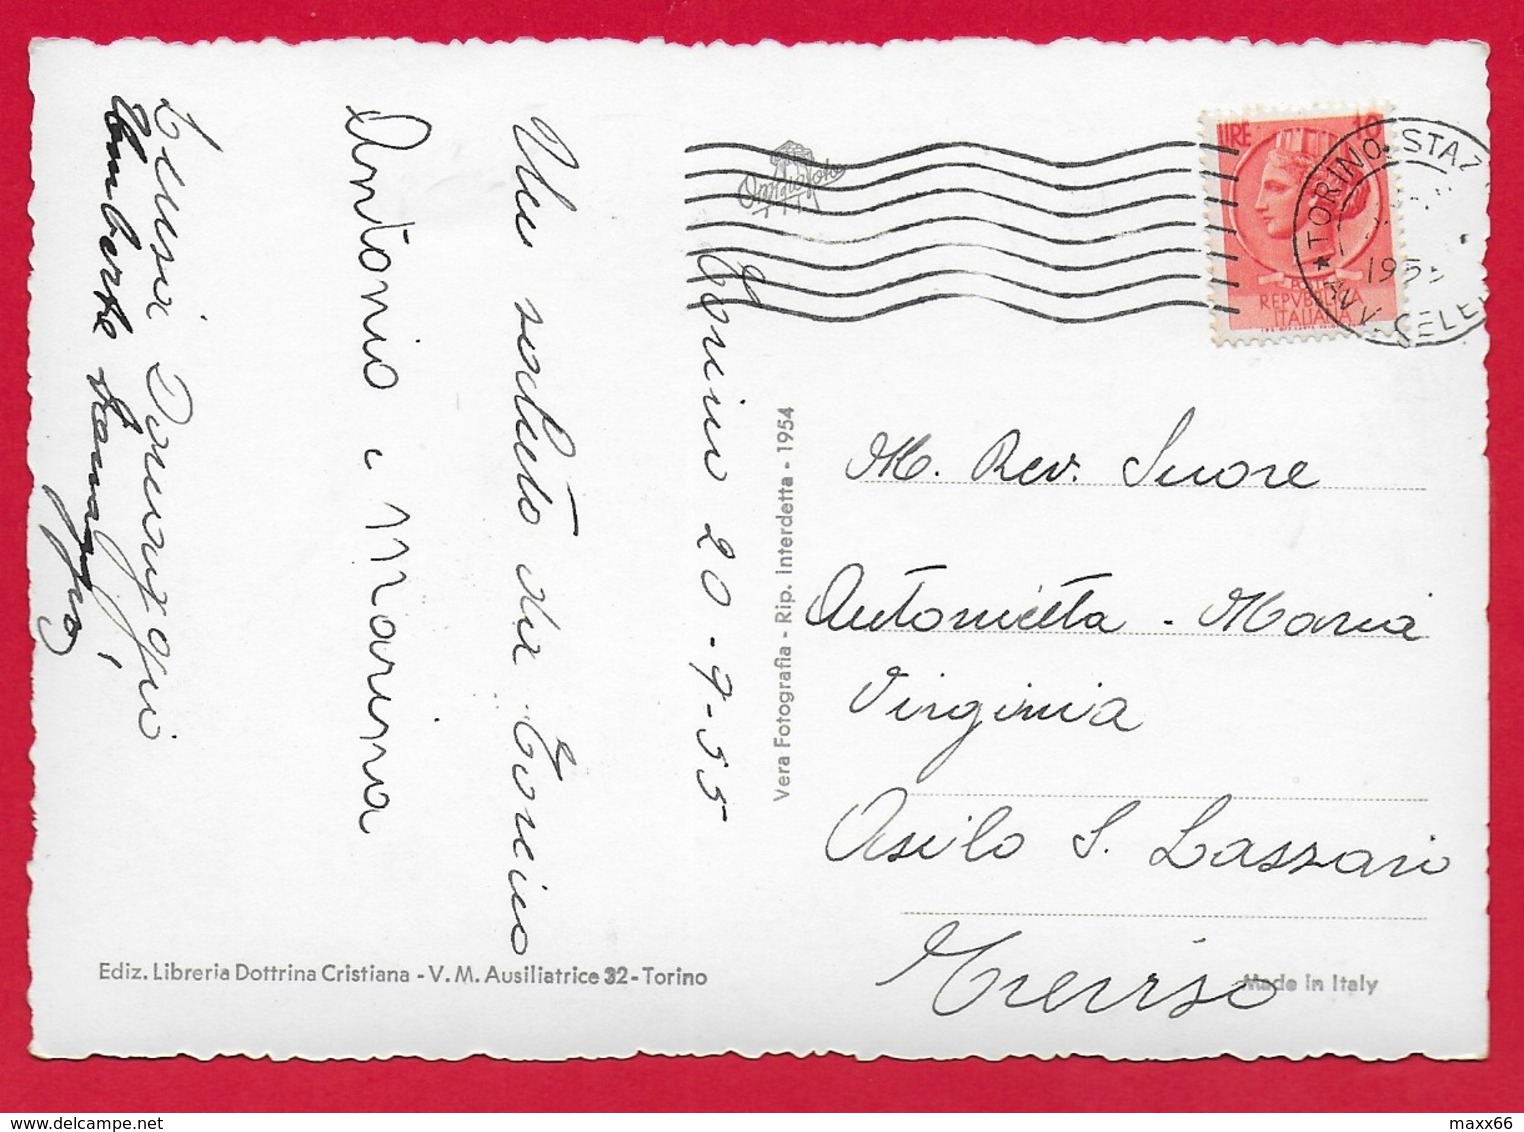 Torino 20-9-55
Un saluto da Torino
Antonio e Marina
Teresa
Umberto
Vera Fotografia - Rip. Interdetta - 1954
LIRE 10
REPVBBLICA
ITALIANA
TORINO STAZ
1955
CELE
M. Rev. Suore
Antonietta - Maria
Virginia
Asilo S. Lazzaro
Treviso
Ediz. Libreria Dottrina Cristiana - V. M. Ausiliatrice 32 - Torino
Made in Italy
maxx66